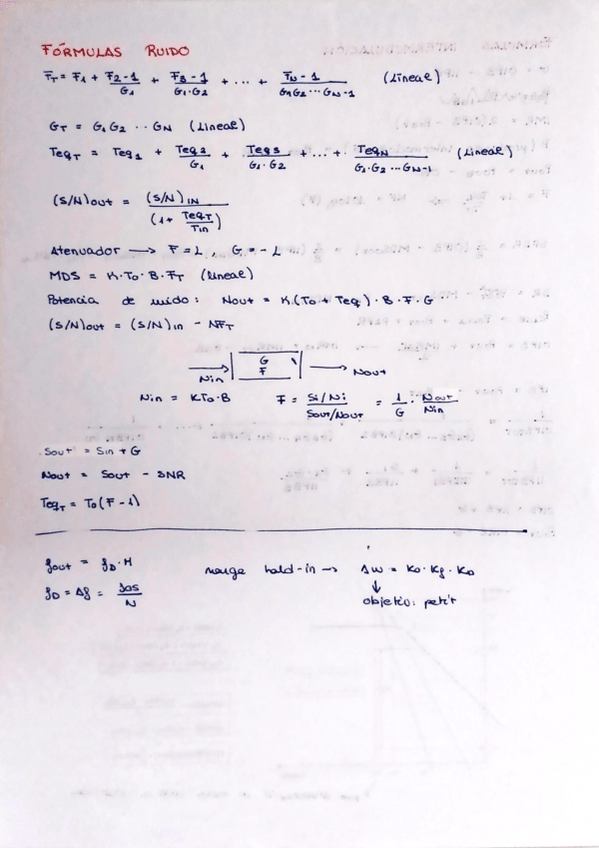 FÓRMULAS RUIDO
F_T = F_1 + (F_2 - 1)/G_1 + (F_3 - 1)/(G_1·G_2) + ... + (F_N - 1)/(G_1G_2...G_N-1) (Lineal)
G_T = G_1G_2 .. G_N (Lineal)
Teq_T = Teq_1 + Teq_2/G_1 + Teq_3/(G_1·G_2) + ... + Teq_N/(G_1·G_2...G_N-1) (Lineal)
(S/N)out = (S/N)_IN/(1 + Teq_T/Tin)
Atenuador → F = L, G = -L
MDS = K·To·B·F_T (lineal)
Potencia de ruido: Nout = K(To + Teq)·B·F·G
(S/N)out = (S/N)in - NF_T
Nin → G F → Nout
Nin = KTo·B F = (Si/Ni)/(Sout/Nout) = 1/G · Nout/Nin
Sout = Sin + G
Nout = Sout - SNR
Teq_T = To(F-1)
fout = f_D·M marge hold-in → Δw = Ko·Kf·KD
f_D = Δf = fos/N objetiu: petit